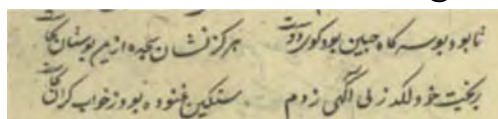 تا بود بوسه گاه جبین بود کوی دوست هرگز نشان سجده ازین بوستان
بر بخت خود لگد زنی آگهی زدم سنگین غنوده بود ز خواب گران